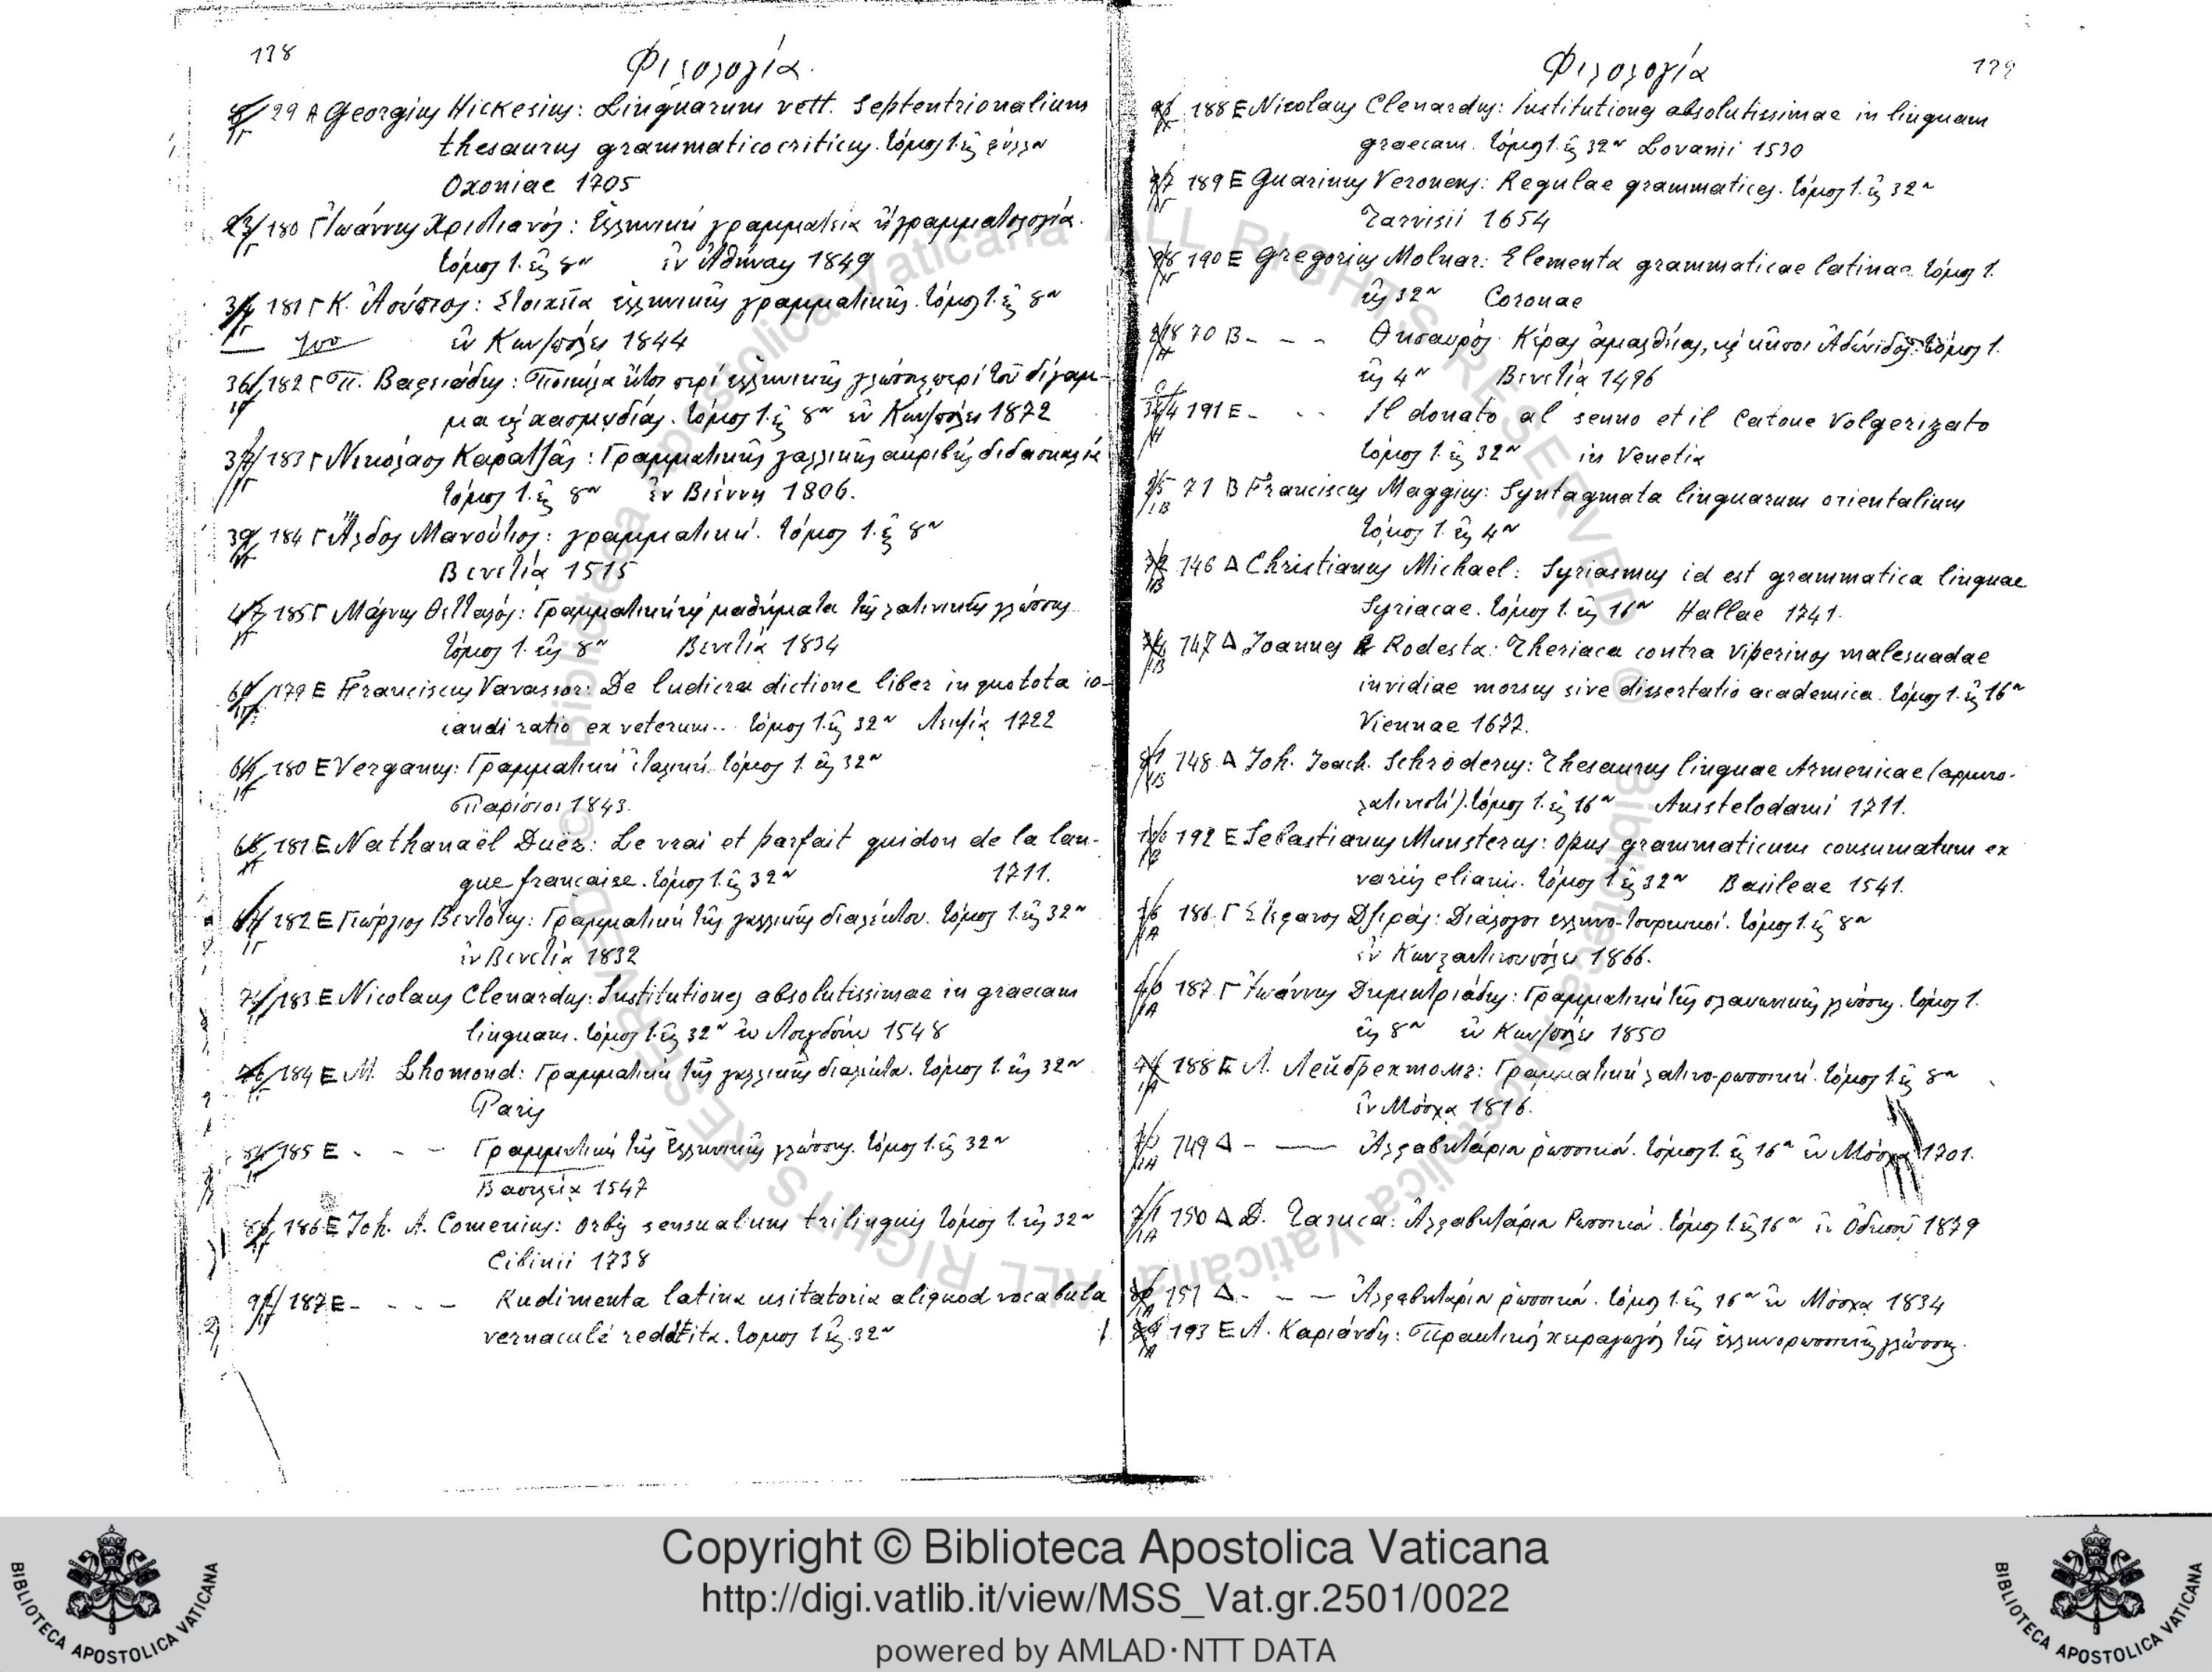 138
Φιλολογία.
29 Α Georgius Hickesius: Linguarum vett. Septentrionalium
thesaurus grammaticocriticus. τόμος 1. εἰς φύλλον
Oxoniae 1705
23/ 180 Γ Ἰωάννης Χριστιανός: Ἑλληνική γραμματεία ἤ γραμματολογία.
τόμος 1. εἰς 8ον ἐν Ἀθήναις 1849
181 Γ Κ. Ἀσώπιος: Στοιχεῖα ἑλληνικῆς γραμματικῆς. τόμος 1. εἰς 8ον
ἐν Κων/πόλει 1844
36/ 182 Γ Π. Βαφειάδης: περί ἑλληνικῆς γλώσσης περί τοῦ δίγαμ-
μα τόμος 1. εἰς 8ον ἐν Κων/πόλει 1872
37/ 183 Γ Νικόλαος Καρατζᾶς: Γραμματικῆς γαλλικῆς ἀκριβής διδασκαλία
τόμος 1. εἰς 8ον ἐν Βιέννῃ 1806.
39/ 184 Γ Ἄλδος Μανούτιος: γραμματική. τόμος 1. εἰς 8ον
Βενετία 1515
47/ 185 Γ Μάγνης Θετταλός: Γραμματική καί μαθήματα τῆς λατινικῆς γλώσσης
τόμος 1. εἰς 8ον Βενετία 1834
179 Ε Franciscus Vavassor: De ludicra dictione liber in quo tota io-
candi ratio ex veterum.. τόμος 1. εἰς 32ον Λειψία 1722
180 Ε Verganus: Γραμματική ἰταλική. τόμος 1. εἰς 32ον
Παρίσιοι 1843.
181 Ε Nathanaël Duëz: Le vrai et parfait guidon de la lan-
gue française. τόμος 1. εἰς 32ον 1711.
182 Ε Γεώργιος Βεντότης: Γραμματική τῆς γαλλικῆς διαλέκτου. τόμος 1. εἰς 32ον
ἐν Βενετία 1832
183 Ε Nicolaus Clenardus: Institutiones absolutissimae in graecam
linguam. τόμος 1. εἰς 32ον ἐν Λουγδούνῳ 1548
184 Ε Μ. Lhomond: Γραμματική τῆς γαλλικῆς διαλέκτου. τόμος 1. εἰς 32ον
Paris
185 Ε - - - Γραμματική τῆς Ἑλληνικῆς γλώσσης. τόμος 1. εἰς 32ον
Βασιλεία 1547
186 Ε Joh. A. Comenius: Orbis sensualium trilinguis τόμος 1. εἰς 32ον
Cibinii 1738
187 Ε - - - - Rudimenta latina usitatoria aliquod vocabula
vernaculé reddita. τόμος 1 εἰς 32ον
Φιλολογία
139
188 Ε Nicolaus Clenardus: Institutiones absolutissimae in linguam
graecam. τόμος 1. εἰς 32ον Lovanii 1530
189 Ε Guarinus Veronens: Regulae grammatices. τόμος 1. εἰς 32ον
Tarvisii 1654
190 Ε Gregorius Molnar: Elementa grammaticae latinae τόμος 1.
εἰς 32ον Coronae
70 Β - - - Θησαυρός Κέρας ἀμαλθείας, καί κῆποι Ἀδώνιδος. τόμος 1.
εἰς 4ον Βενετία 1496
191 Ε - - - Il donato al senno et il Catone Volgerizato
τόμος 1. εἰς 32ον in Venetia
71 Β Franciscus Maggius: Syntagmata linguarum orientalium
τόμος 1. εἰς 4ον
146 Δ Christianus Michael: Syriasmus id est grammatica linguae
Syriacae. τόμος 1. εἰς 16ον Hallae 1741.
147 Δ Joannes Rodesta: Theriaca contra viperinos malesuadae
invidiae morsus sive dissertatio academica. τόμος 1. εἰς 16ον
Viennae 1677.
148 Δ Joh. Joach. Schröderus: Thesaurus linguae Armenicae (αρμενο-
λατινιστί). τόμος 1. εἰς 16ον Amstelodami 1711.
192 Ε Sebastianus Munsterus: Opus grammaticum consumatum ex
variis elianis. τόμος 1. εἰς 32ον Basileae 1541.
186 Γ Στέφανος Διάλογοι ελληνο-τουρκικοί. τόμος 1. εἰς 8ον
ἐν Κωνσταντινουπόλει 1866.
187 Γ Ἰωάννης Δημητριάδης: Γραμματική τῆς σλαυωνικῆς γλώσσης. τόμος 1.
εἰς 8ον ἐν Κων/πόλει 1850
188 Γραμματική λατινο-ρωσσική. τόμος 1. εἰς 8ον
ἐν Μόσχα 1816.
149 Δ - —— Ἀλφαβητάριον ρωσσικόν. τόμος 1. εἰς 16ον ἐν Μόσχα 1701.
150 Δ Ἀλφαβητάριον Ρωσσικόν. τόμος 1. εἰς 16ον ἐν Ὀδησσῷ 1879
151 Δ - - — Ἀλφαβητάριον ρωσσικόν. τόμος 1. εἰς 16ον ἐν Μόσχα 1834
193 Ε Λ. Καριάνδη: Πρακτικός χειραγωγός τῆς ἑλληνορωσσικῆς γλώσσης.
Copyright © Biblioteca Apostolica Vaticana
http://digi.vatlib.it/view/MSS_Vat.gr.2501/0022
powered by AMLAD·NTT DATA
BIBLIOTECA APOSTOLICA VATICANA
BIBLIOTECA APOSTOLICA VATICANA